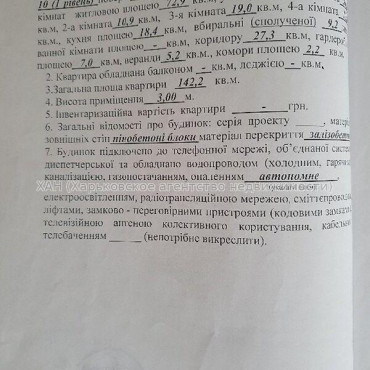 10 (1 рівень)
кімнат житловою площею 72,9 кв.м,
кв.м, 2-а кімната 10,9 кв.м, 3-я кімната 19,0 кв.м, 4-а кімната
кв.м., кухня площею 18,4 кв.м, вбиральні (сполученої) 9,2
ванної кімнати площею - кв.м, коридору 27,3 кв.м,
площею 7,0 кв.м, веранди 5,2 кв.м., комори площею 2,2 кв.м.
2. Квартира обладнана балконом - кв.м, лоджією - кв.м.
3.Загальна площа квартири 142,2 кв.м.
4. Висота приміщення 3,00 м.
5. Інвентаризаційна вартість квартири - грн.
6. Загальні відомості про будинок: серія проекту
зовнішніх стін пінобетоні блоки матеріал перекриття
7. Будинок підключено до телефонної мережі, об'єднаної
диспетчерської та обладнано водопроводом (холодним,
каналізацією, газопостачанням, опаленням автопомне
ХАН (Харьковское агентство недвижимости)
електроосвітленням, радіотрансляційною мережею,
ліфтами, замково - переговорними пристроями (кодовими
телевізійною антеною колективного користування,
телебаченням (непотрібне викреслити).